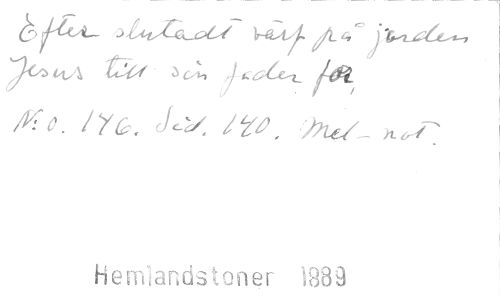 Efter slutadt värf på jorden
Jesus till sin fader for,
N:o. 146. Sid. 140. Mel-not.
Hemlandstoner 1889